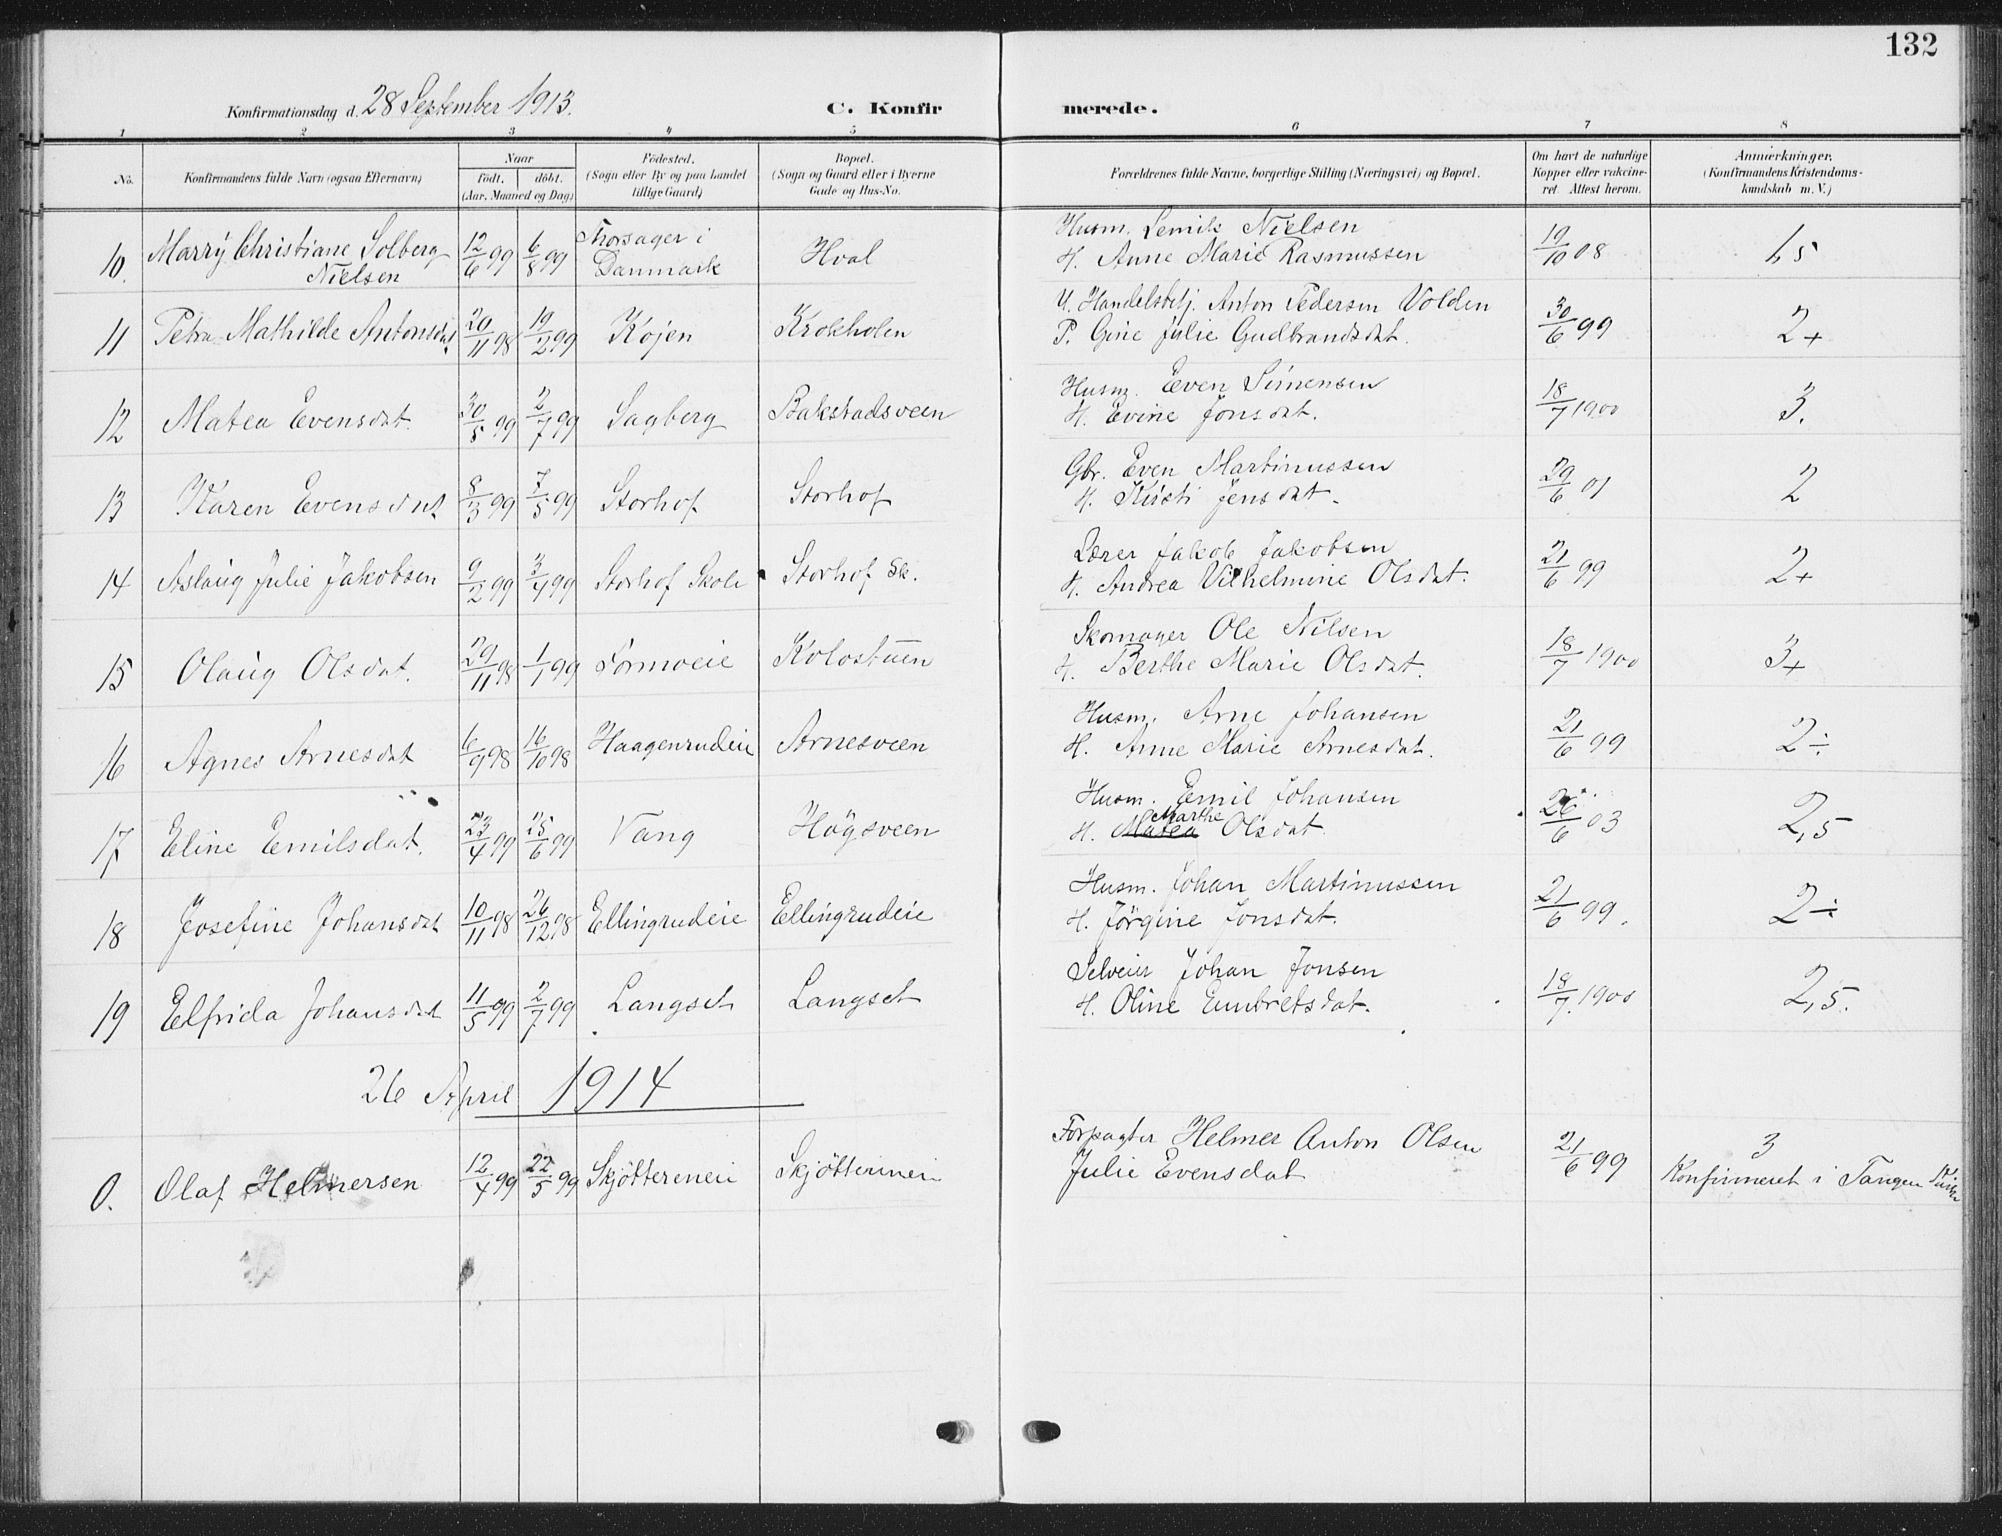 132
Konfirmationsdag d. 28 September 1913.
C. Konfir merede.
1 2 3 4 5 6 7 8
No.
Konfirmandens fulde Navn (ogsaa Efternavn)
Naar
födt. döbt.
(Aar, Maaned og Dag)
Födested.
(Sogn eller By og paa Landet
tillige Gaard)
Bopæl.
(Sogn og Gaard eller i Byerne
Gade og Hus-No.
Forældrenes fulde Navne, borgerlige Stilling (Næringsvei) og Bopæl.
Om havt de naturlige
Kopper eller vakcine-
ret. Attest herom.
Anmærkninger.
(Konfirmandens Kristendoms-
kundskab m. V.)
10. Marry Christiane Solberg 12/6 99 6/8 99 Thorsager i Hval Husm. Lemik Nielsen 19/10 08 1,5
Nielsen Danmark H. Anne Marie Rasmussen
11 Petra Mathilde Antonsdat 20/11 98 19/2 99 Kojen Krokholen U. Handelsbetj. Anton Pedersen Volden 30/6 99 2+
P. Gine Julie Gudbrandsdat.
12 Matea Evensdat. 30/5 99 2/7 99 Sagberg Bakstadsveen Husm. Even Simensen 18/7 1900 3.
H. Evine Jonsdat.
13 Karen Evensdat 8/3 99 7/5 99 Storhof Storhof Gbr. Even Martinussen 29/6 01 2
H. Kristi Jensdat.
14 Aslaug Julie Jakobsen 9/2 99 3/4 99 Storhof Skole Storhof Sk. Lærer Jakob Jakobsen 21/6 99 2+
H. Andrea Vilhelmine Olsdat.
15 Olaug Olsdat. 29/11 98 1/1 99 Tomoeie Kolostuen Skomager Ole Nilsen 18/7 1900 3+
H. Berthe Marie Olsdat.
16 Agnes Arnesdat 6/9 98 16/10 98 Haagenrudeie Arnesveen Husm. Arne Johansen 21/6 99 2÷
H. Anne Marie Arnesdat.
17 Eline Emilsdat. 23/4 99 25/6 99 Vang Høgsveen Husm. Emil Johansen 26/6 03 2,5
Marthe
H. Matea Olsdat.
18 Josefine Johansdat 10/11 98 26/12 98 Ellingrudeie Ellingrudeie Husm. Johan Martinussen 21/6 99. 2÷
H. Jörgine Jonsdat.
19 Elfrida Johansdat 11/5 99 2/7 99 Langset Langset Selveier Johan Jonsen 18/7 1900 2,5.
H. Oline Embretsdat.
26 April 1914
0. Olaf Helmersen 12/4 99 22/5 99 Skjöttereneie Forpagter Helmer Anton Olsen 21/6 99 3
Julie Evensdat Konfirmeret i Tangen Kirke